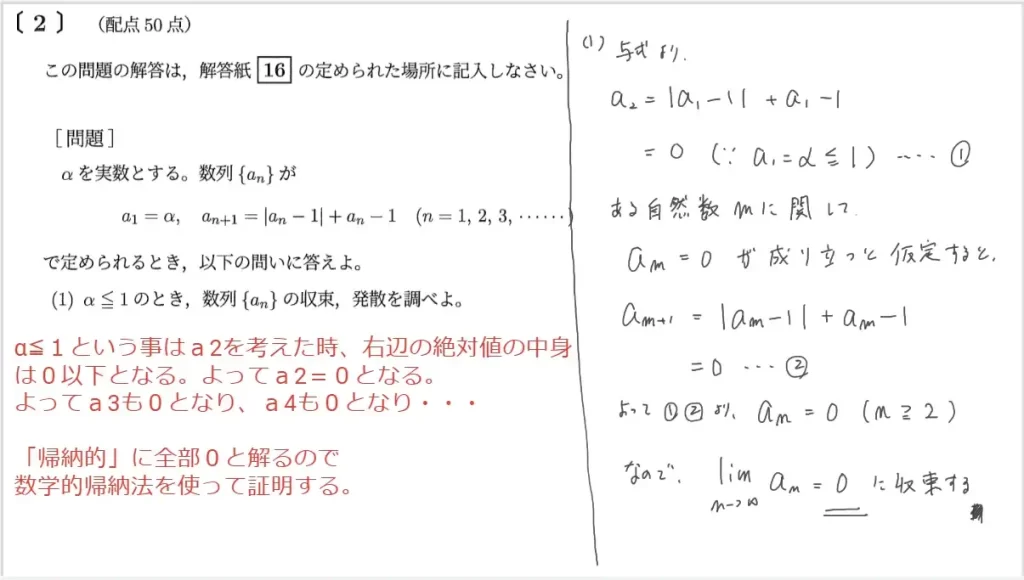 〔 2 〕 (配点 50 点)
この問題の解答は，解答紙 16 の定められた場所に記入しなさい。
[問題]
αを実数とする。数列{aₙ}が
a₁ = α, aₙ₊₁ = |aₙ − 1| + aₙ − 1 (n = 1, 2, 3, ……)
で定められるとき，以下の問いに答えよ。
(1) α ≦ 1 のとき，数列{aₙ}の収束，発散を調べよ。
α≦１という事はａ2を考えた時、右辺の絶対値の中身
は０以下となる。よってａ2＝０となる。
よってａ3も０となり、ａ4も０となり・・・
「帰納的」に全部０と解るので
数学的帰納法を使って証明する。
(1) 与式より.
a₂ = |a₁ − 1| + a₁ − 1
= 0 (∵ a₁ = α ≦ 1) ‥‥ ①
ある自然数 m に関して.
aₘ = 0 が成り立つと仮定すると,
aₘ₊₁ = |aₘ − 1| + aₘ − 1
= 0 … ②
よって ①② より, aₙ = 0 (n ≧ 2)
なので, lim n→∞ aₙ = 0 に収束する